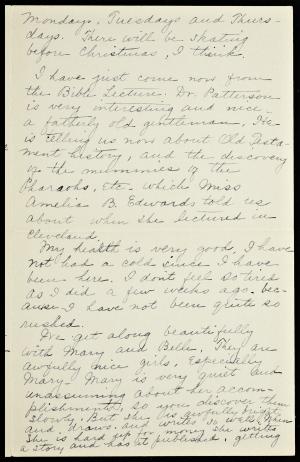 Mondays, Tuesdays and Thurs-
days. There will be skating
before Christmas, I think.
I have just come now from
the Bible Lecture. Dr. Patterson
is very interesting and nice.
a fatherly old gentleman. He
is telling us now about Old Testa-
ment history, and the discovery
of the mummies of the
Pharaohs, Etc. which Miss
Amelia B. Edwards told us
about when she lectured in
Cleveland.
My health is very good, I have
not had a cold since I have
been here. I don't feel so tired
as I did a few weeks ago, bec-
ause I have not been quite so
rushed.
We get along beautifully
with Mary and Belle. They are
awfully nice girls, Especially
Mary. Mary is very quiet and
unassuming about her accom-
plishments, so you discover them
slowly. But she is awfully bright,
and draws and writes. When
she is hard up for money she writes
a story and has it published, getting